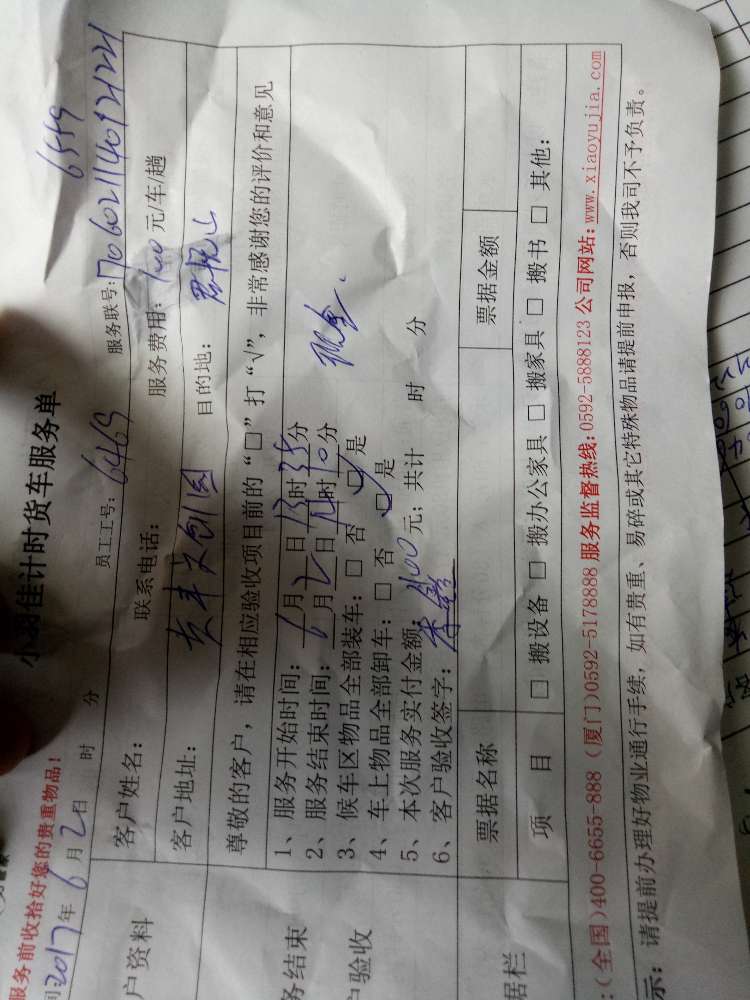 小羽佳计时货车服务单
服务前收拾好您的贵重物品!
2017年6月2日 时 分 员工工号: 6469 服务联号:
6559
户资料 客户姓名: 联系电话: 服务费用: 元/车/趟
客户地址: 目的地:
务结束 尊敬的客户,请在相应验收项目前的“□”打“√”,非常感谢您的评价和意见
户验收 1、服务开始时间: 6月2日13时35分
2、服务结束时间: 月2日 时 分
3、候车区物品全部装车: □ 否 □ 是
4、车上物品全部卸车: □ 否 □ 是
5、本次服务实付金额: 100元; 共计 时 分
现金.
6、客户验收签字:
据栏 票据名称 票据金额
项 目 □ 搬设备 □ 搬办公家具 □ 搬家具 □ 搬书 □ 其他:
:(全国)400-6655-888 (厦门)0592-5178888 服务监督热线:0592-5888123 公司网站:www.xiaoyujia.com
示: 请提前办理好物业通行手续, 如有贵重、易碎或其它特殊物品请提前申报, 否则我司不予负责。